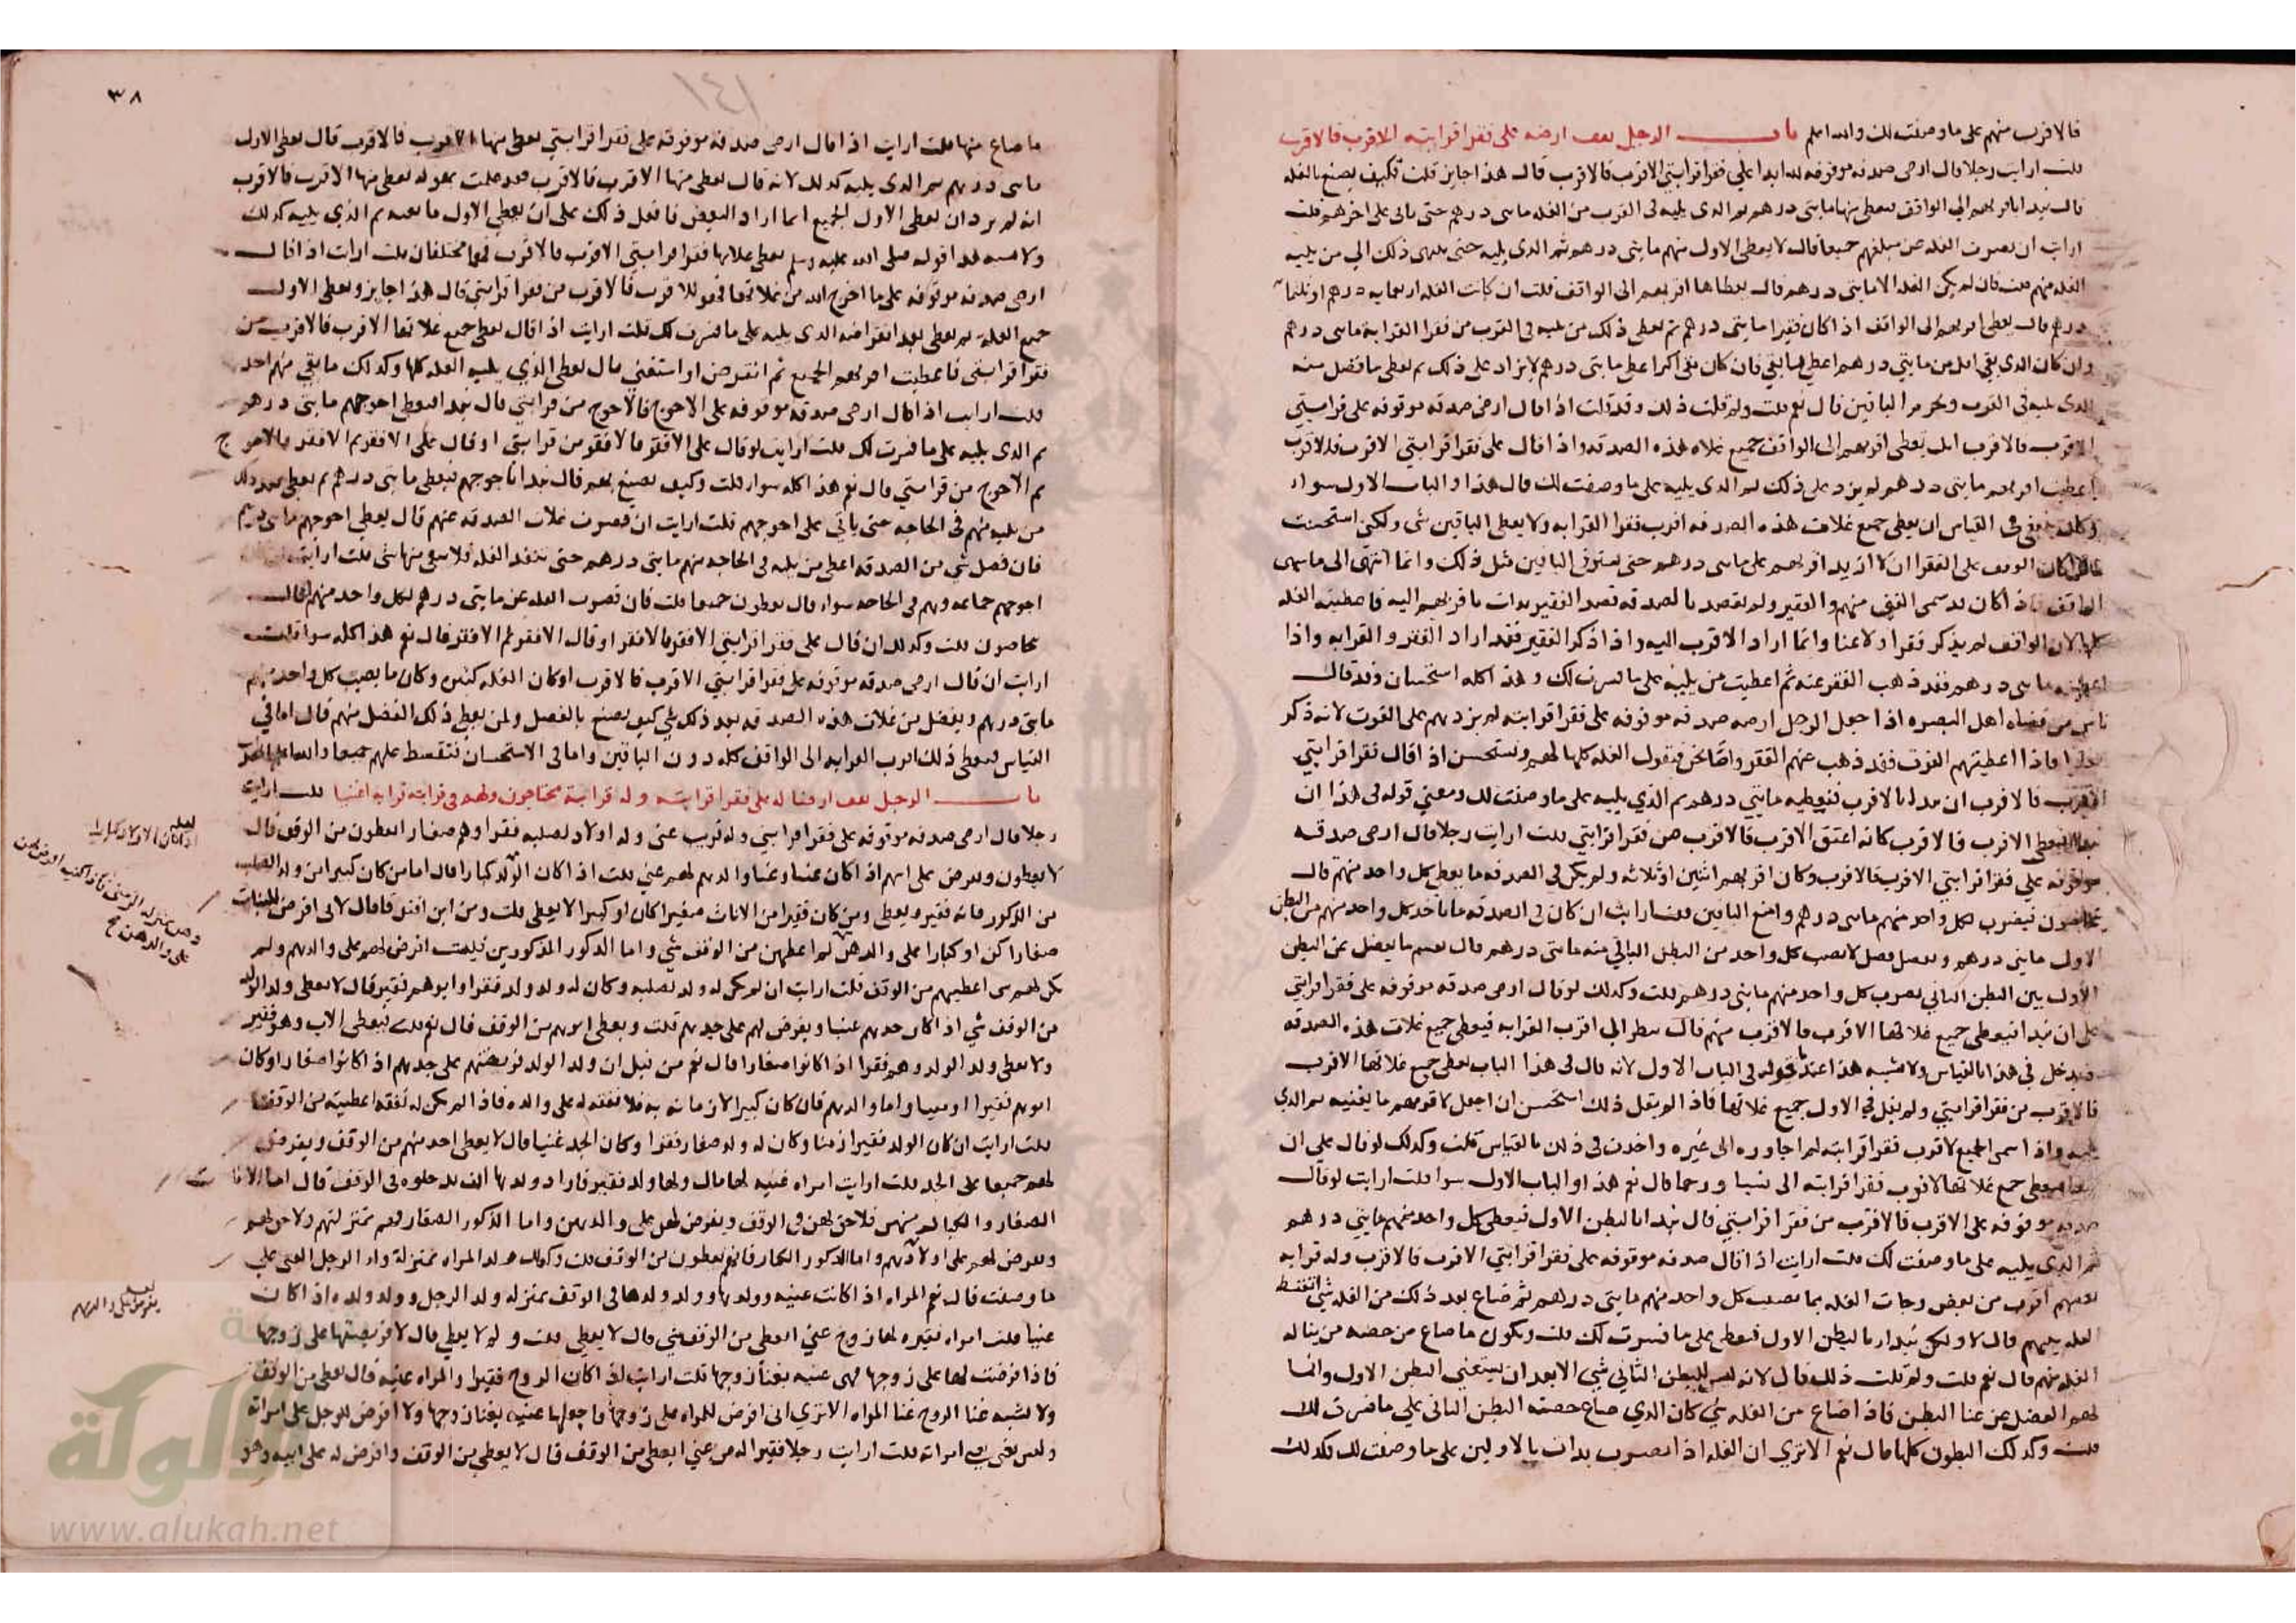 فالاقرب منهم على ما وصفت لك والله اعلم باب الرجل يقف ارضه على فقرا قرابته الاقرب فالاقرب
قلت ارايت رجلا قال ارضي صدقة موقوفة لله ابدا على فقرا قرابتي الاقرب فالاقرب قال هذا جايز قلت فكيف يصنع بالغله
قال يبدا باقربهم الى الواقف فيعطى منها مايتي درهم ثم الذي يليه في القرب من الغله مايتي درهم حتى ياتي على اخرهم قلت
ارايت ان قصرت الغله عن مبلغهم جميعا قال يعطى الاول منهم مايتي درهم ثم الذي يليه حتى ينتهى ذلك الى من يليه
الغله منهم قلت فان لم يكن الغله الا مايتي درهم قال يعطاها اقربهم الى الواقف قلت ان كانت الغله اربعمايه درهم او ثلثمايه
درهم قال يعطى اقربهم الى الواقف اذا كان فقيرا مايتي درهم ثم يعطى ذلك من يليه في القرب من فقرا القرابه مايتي درهم
وان كان الذي بقي اقل من مايتي درهم اعطى ما بقي فان كان بقي اكثر اعطى مايتي درهم لا يزاد على ذلك ثم يعطى ما فضل منه
الذي يليه في القرب ويحرم الباقين قال نعم قلت ولم قلت ذلك وقد قلت اذا قال ارضي صدقه موقوفه على قرابتي
الاقرب فالاقرب انك تعطى اقربهم الى الواقف جميع غلة هذه الصدقه واذا قال على فقرا قرابتي الاقرب فالاقرب
اعطيت اقربهم مايتي درهم لم يزد على ذلك ثم الذي يليه على ما وصفت لك قال هذا والباب الاول سواء
وكان ينبغي في القياس ان يعطى جميع غلات هذه الصدقه اقرب فقرا القرابه ولا يعطى الباقين شي ولكني استحسنت
الوقف على الفقرا ان لا ازيد اقربهم على مايتي درهم حتى يستوفى الباقين مثل ذلك وانما انتهى الى ما سمى
الواقف فاذا كان قد سمى الغني منهم والفقير ولم يقصد بالصدقه قصد الفقير بدات باقربهم اليه فاعطيته الغله
كلها لان الواقف لم يذكر فقرا ولا غنا وانما اراد الاقرب اليه واذا ذكر الفقير فقد اراد الفقر والقرابه واذا
اعطيته مايتي درهم فقد ذهب الفقر عنه ثم اعطيت من يليه على ما فسرت لك وهذا كله استحسان وقد قال
ناس من قضاة اهل البصره اذا جعل الرجل ارضه صدقه موقوفه على فقرا قرابته لم يزدهم على القوت لانه ذكر
فاذا اعطيتهم القوت فقد ذهب عنهم الفقر واما نحن فنقول الغله كلها لهم ونستحسن اذا قال فقرا قرابتي
الاقرب فالاقرب ان نبدا بالاقرب فنعطيه مايتي درهم ثم الذي يليه على ما وصفت لك ومعنى قوله في هذا ان
يعطى الاقرب فالاقرب كانه اعتق الاقرب فالاقرب من فقرا قرابتي قلت ارايت رجلا قال ارضي صدقه
موقوفه على فقرا قرابتي الاقرب فالاقرب وكان اقربهم اثنين او ثلاثه ولم يكن في الصدقه ما يعطى كل واحد منهم قال
يتحاصون فيضرب لكل واحد منهم مايتي درهم وامنع الباقين قلت ارايت ان كان في الصدقه ما ياخذ كل واحد منهم من البطن
الاول مايتي درهم ويفضل فضل لا يصيب كل واحد من البطن الثاني منه مايتي درهم قال يقسم ما يفضل عن البطن
الاول بين البطن الثاني يضرب كل واحد منهم مايتي درهم قلت وكذلك لو قال ارضي صدقه موقوفه على فقرا قرابتي
على ان يبدا فيعطى جميع غلاتها الاقرب فالاقرب منهم قال ينظر الى اقرب القرابه فيعطى جميع غلات هذه الصدقه
فيدخل في هذا بالقياس ولا يشبه هذا عندنا قوله في الباب الاول لانه قال في هذا الباب يعطى جميع غلاتها الاقرب
فالاقرب من فقرا قرابتي ولم يقل في الاول جميع غلاتها فاذا لم يقل ذلك استحسن ان اجعل لاقربهم ما يغنيه ثم الذي
يليه واذا سمى الجميع لاقرب فقرا قرابته لم اجاوزه الى غيره واخذت في ذلك بالقياس قلت وكذلك لو قال على ان
يعطى جميع غلاتها لاقرب فقرا قرابته الى نسبا ورحما قال نعم هذا والباب الاول سوا قلت ارايت لو قال
صدقه موقوفه على الاقرب فالاقرب من فقرا قرابتي قال يبدا بالبطن الاول فيعطى كل واحد منهم مايتي درهم
ثم الذي يليه على ما وصفت لك قلت ارايت اذا قال صدقه موقوفه على فقرا قرابتي الاقرب فالاقرب وله قرابه
بعضهم اقرب من بعض وجات الغله بما يصيب كل واحد منهم مايتي درهم ثم ضاع بعد ذلك من الغله شي اتقسط
الغله بينهم قال لا ولكن يبدا بالبطن الاول فيعطى على ما فسرت لك قلت ويكون ما ضاع من حصه من يناله
الغله منهم قال نعم قلت ولم قلت ذلك قال لانه ليس للبطن الثاني شي الا بعد ان يستغني البطن الاول وانما
لهم الفضل عن غنا البطن فاذا ضاع من الغله شي كان الذي ضاع حصة البطن الثاني على ما فسرت لك
قلت وكذلك البطون كلها قال نعم الا ترى ان الغله اذا قصرت بدات بالاولين على ما وصفت لك فكذلك
٣٨
١٤١
ما ضاع منها قلت ارايت اذا قال ارضي صدقه موقوفه على فقرا قرابتي يعطى منها الاقرب فالاقرب قال يعطى الاول
مايتي درهم ثم الذي يليه كذلك لانه قال يعطى منها الاقرب فالاقرب فقد علمت بقوله يعطى منها الاقرب فالاقرب
انه لم يرد ان يعطى الاول الجميع انما اراد البعض فافعل ذلك على ان يعطى الاول ما يغنيه ثم الذي يليه كذلك
ولا يشبه هذا قوله يعطى غلاتها فقرا قرابتي الاقرب فالاقرب فهما مختلفان قلت ارايت اذا قال
ارضي صدقه موقوفه على ما اخرج الله من غلاتها فهو للاقرب فالاقرب من فقرا قرابتي قال هذا جايز ويعطى الاول
جميع الغله ثم يعطى بعد انقراضه الذي يليه على ما فسرت لك قلت ارايت اذا قال يعطى جميع غلاتها الاقرب فالاقرب من
فقرا قرابتي فاعطيت اقربهم الجميع ثم انقرض او استغنى قال يعطى الذي يليه الغله كلها وكذلك ما بقي منهم احد
قلت ارايت اذا قال ارضي صدقه موقوفه على الاحوج فالاحوج من قرابتي قال يبدا فيعطى احوجهم مايتي درهم
ثم الذي يليه على ما فسرت لك قلت ارايت لو قال على الافقر فالافقر من قرابتي او قال على الافقر ثم الافقر فالاحوج
ثم الاحوج من قرابتي قال نعم هذا كله سواء قلت وكيف يصنع بهم قال يبدا باحوجهم فيعطى مايتي درهم ثم يعطى بعد ذلك
من يليه منهم في الحاجه حتى ياتي على احوجهم قلت ارايت ان قصرت غلات الصدقه عنهم قال يعطى احوجهم مايتي درهم
فان فضل شي من الصدقه اعطى من يليه في الحاجه منهم مايتي درهم حتى تنفد الغله فلا يبقى منها شي قلت ارايت ان كان
احوجهم جماعه وهم في الحاجه سواء قال يعطون جميعا قلت فان قصرت الغله عن مايتي درهم لكل واحد منهم قال
يتحاصون قلت وكذلك ان قال على فقرا قرابتي الافقر فالافقر او قال الافقر ثم الافقر قال نعم هذا كله سوا قلت
ارايت ان قال ارضي صدقه موقوفه على فقرا قرابتي الاقرب فالاقرب او كان الغله كثيره وكان ما يصيب كل واحد منهم
مايتي درهم ويفضل من غلات هذه الصدقه بعد ذلك شي كيف يصنع بالفضل ولمن يعطى ذلك الفضل منهم قال اما في
القياس فيعطى ذلك اقرب القرابه الى الواقف كله دون الباقين واما في الاستحسان فتقسط عليهم جميعا والله اعلم
باب الرجل يقف ارضا له على فقرا قرابته وله قرابة محتاجون ولهم في قرابته قرابه اغنيا قلت ارايت
رجلا قال ارضي صدقه موقوفه على فقرا قرابتي وله قريب غني وله اولاد لصلبه فقرا وهم صغار ايعطون من الوقف قال
لا يعطون ويفرض على ابيهم اذا كان غنيا وغنا والدهم لهم غني قلت اذا كان الولد كبارا قال اما من كان كبيرا من ولد الصلب
من الذكور فانه فقير ويعطى ومن كان فقيرا من الاناث صغيرا كان او كبيرا لا يعطى قلت ومن اين افترقا قال لاني افرض للبنات
صغارا كن او كبارا على والدهن لم اعطهن من الوقف شي واما الذكور المذكورين فليست افرض لهم على والدهم ولم
يكن لهم شي اعطيهم من الوقف قلت ارايت ان لم يكن له ولد لصلبه وكان له ولد ولد فقرا وابوهم فقير قال لا يعطى ولد الولد
من الوقف شي اذا كان جدهم غنيا ويفرض لهم على جدهم قلت ويعطى ابوهم من الوقف قال نعم قلت فيعطى الاب وهو فقير
ولا يعطى ولد الولد وهم فقرا اذا كانوا صغارا قال نعم من قبل ان ولد الولد فريضتهم على جدهم اذا كانوا صغارا وكان
ابوهم فقيرا واما والدهم فان كان كبيرا لا زمانه به فلا نفقه له على والده فاذا لم يكن له نفقه اعطيته من الوقف
قلت ارايت ان كان الولد فقيرا زمنا وكان له ولد صغار فقرا وكان الجد غنيا قال لا يعطى احد منهم من الوقف ويفرض
لهم جميعا على الجد قلت ارايت امراه غنيه لها مال ولها ولد فقير فاراد ولدها ان يدخلوه في الوقف قال اما الاناث
الصغار والكبار منهن فلا حق لهن في الوقف ويفرض لهن على والدتهن واما الذكور الصغار فهم بمنزلتهم ولا حق لهم
ويفرض لهم على اولادهم واما الذكور الكبار فانهم يعطون من الوقف قلت وكذلك ولد المراه بمنزلة ولد الرجل الغني على
ما وصفت قال نعم المراه اذا كانت غنيه وولدها وولد ولدها في الوقف بمنزله ولد الرجل وولد ولده اذا كان
غنيا قلت امراه فقيره لها زوج غني ايعطى من الوقف شي قال لا يعطى قلت ولم لا يعطى قال لان فريضتها على زوجها
فاذا فرضت لها على زوجها فهي غنيه بغنا زوجها قلت ارايت اذا كان الزوج فقيرا والمراه غنيه قال يعطى من الوقف
ولا يشبه غنا الزوج غنا المراه الا ترى اني افرض للمراه على زوجها فاجعلها غنيه بغنا زوجها ولا افرض للرجل على امراته
وليس يغنى بغنى امراته قلت ارايت رجلا فقيرا له من غني ايعطى من الوقف قال لا يعطى من الوقف وافرض له على ابيه وهو
لعله
اذا كان الاولاد كبارا
على والدهن صح
لعله
يفرض على والدتهم
الألوكة
www.alukah.net